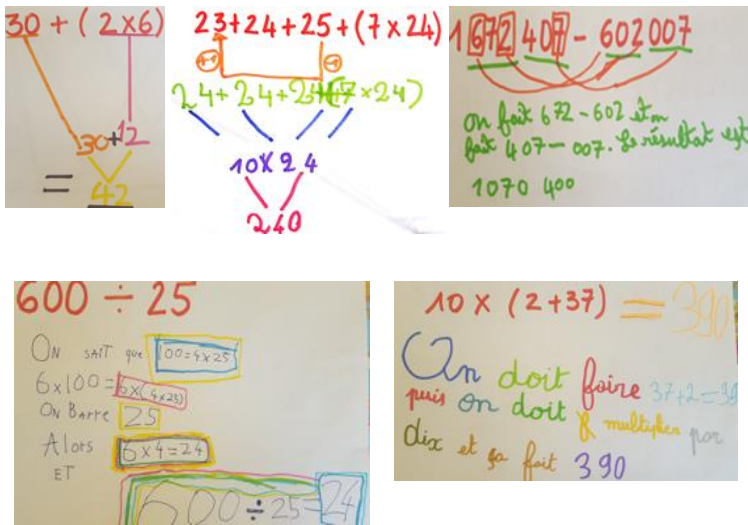 30 + ( 2x6)
30+12
= 42
23+24+25+(7x24)
24+24+24+(7x24)
10x24
240
1672407-602007
on fait 672-602 et on
fait 407-007. Le résultat est
1070 400
600 ÷ 25
ON SAIT que 100=4x25
6x100=6x(4x25)
ON BARRE 25
Alors 6x4=24
ET
600÷25=24
10 x (2+37) = 390
On doit faire 37+2=39
puis on doit & multiplier par
dix et ça fait 390